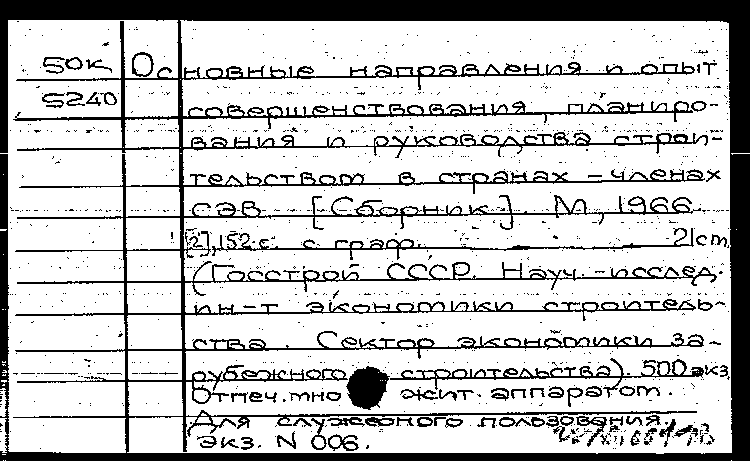 50К Основные направления и опыт
S240 совершенствования, планиро-
вания и руководства строи-
тельством в странах - членах
СЭВ [Сборник]. М, 1966.
[2], 152 с. с граф. 21cm
(Госстрой СССР. Науч.-исслед.
ин-т экономики строитель-
ства. Сектор экономики за-
рубежного строительства). 500 экз
Отпеч. множит. аппаратом.
Для служебного пользования.
Экз. N 006.